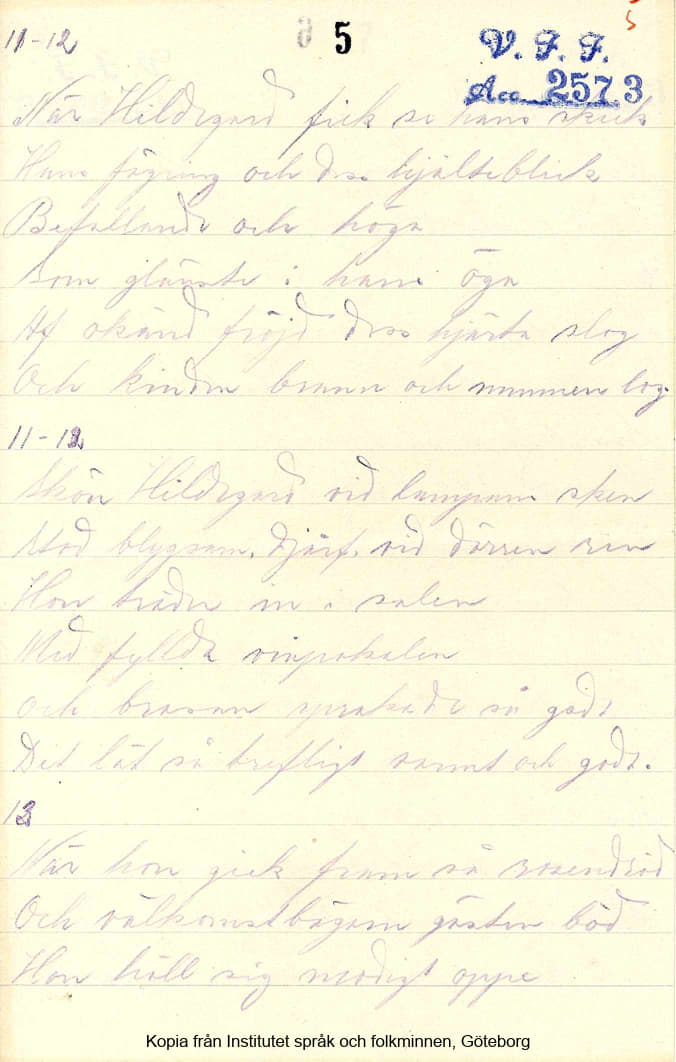 5
5
11-12
V. F. F.
Acc. 2573
När Hildegard fick se hans skick
Hans fägring och dess hjälteblick
Befallande och höga
Som glänste i hans öga
Af okänd fröjd dess hjärta slog
Och kinden brann och munnen log.
11-12
Skön Hildegard vid lampans sken
Stod blygsam, djärf, vid dörren ren
Hon träder in i salen
Med fyllda vinpokalen
Och brasan sprakade så godt
Det lät så trefligt varmt och godt.
13
När hon gick fram så rosendröd
Och välkomstbägarn gästen böd
Hon höll sig modigt oppe
Kopia från Institutet språk och folkminnen, Göteborg